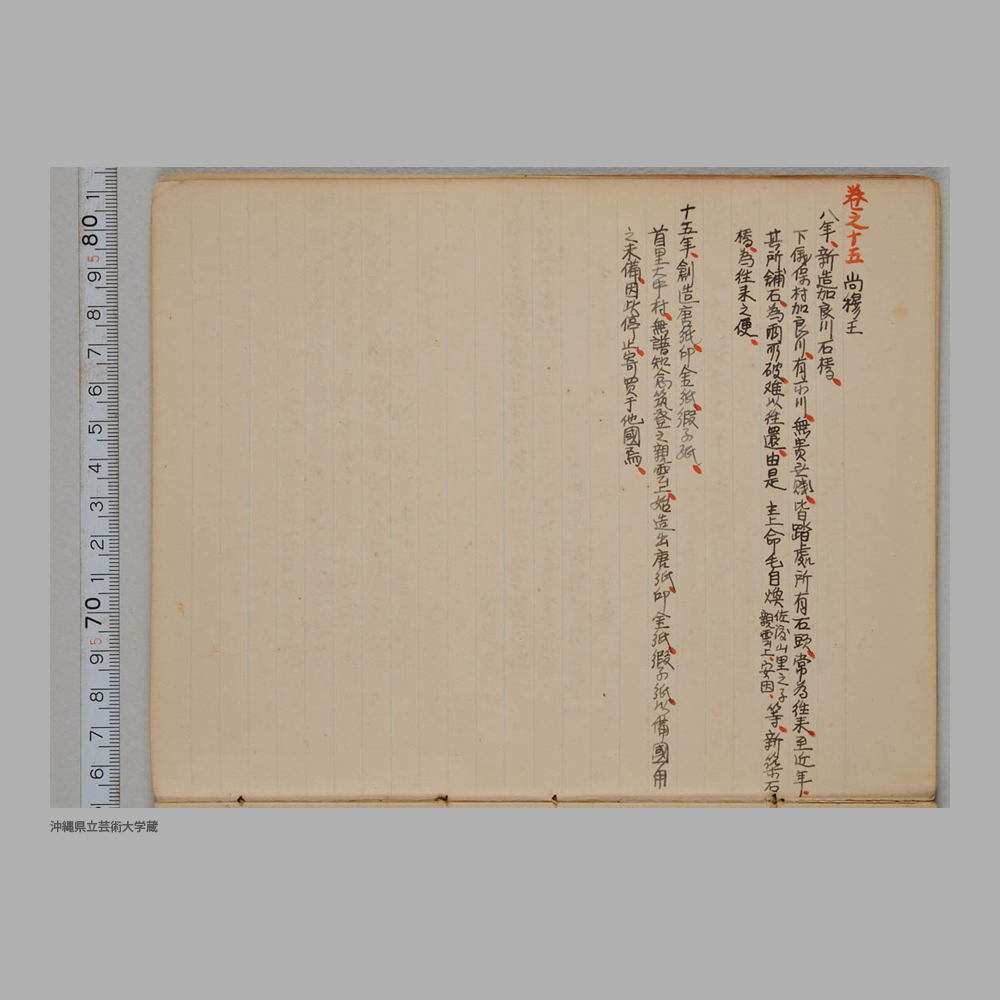 卷之十五 尚穆王
八年、新造加良川石橋、
下儀保村加良川、有小川、無貴無賤、皆踏處所有石頭、常為往来、至近年、
其所鋪石、為雨所破、难以往還、由是 主上命毛自煥 佐渡山里之子親雲上、安因、等、新築石
橋、為往来之便、
十五年、創造唐紙、印金紙、緞子紙、
首里大中村、無譜知念筑登之親雲上、始造出唐紙、印金紙、緞子紙、以備國用
之未備、因此停止寄買于他國焉、
80
70
沖縄県立芸術大学蔵